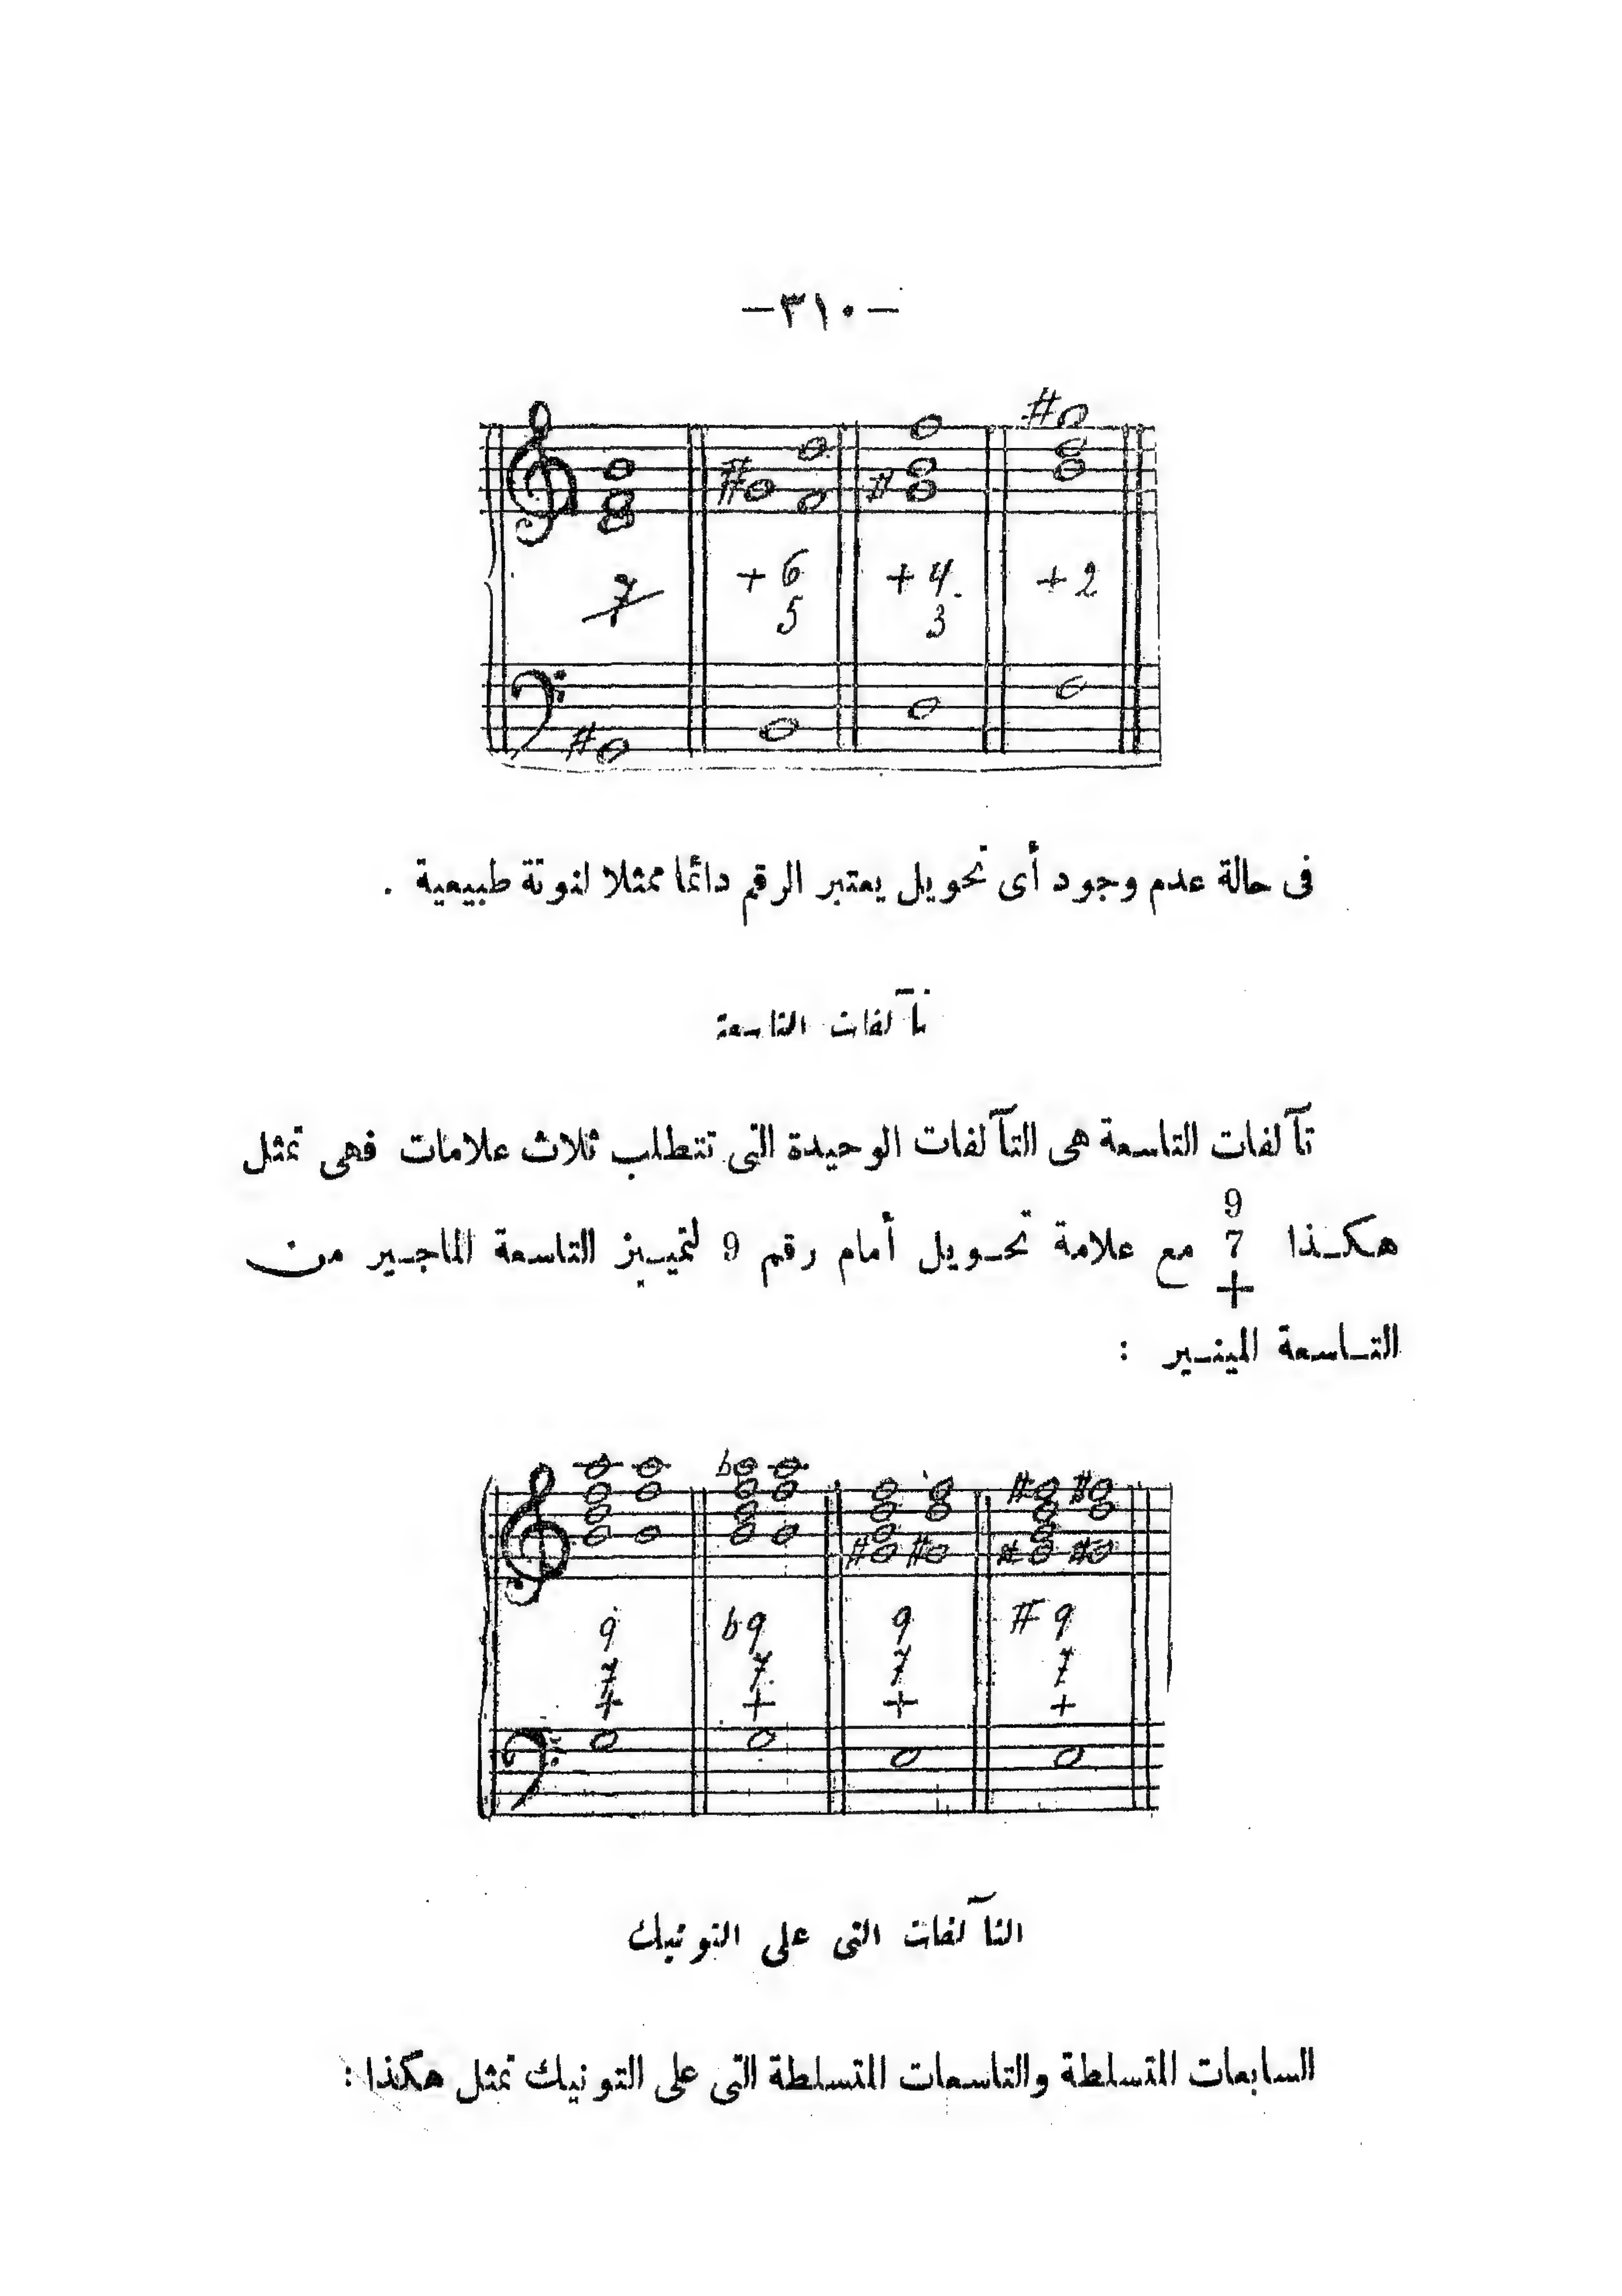 —٣١٠—
7 +6 +4 +2
5 3
فى حالة عدم وجود أى تحويل يعتبر الرقم دائما ممثلا لنوتة طبيعية .
تآلفات التاسعة
تآلفات التاسعة هى التآلفات الوحيدة التى تتطلب ثلاث علامات فهى تمثل
9
هكـذا 7 مع علامة تحـويل أمام رقم 9 لتميـيز التاسعة الماجـير من
+
التـاسعة المينـير :
9 b9 9 #9
7 7 7 7
+ + + +
التآلفات التى على التونيك
السابعات المتسلطة والتاسعات المتسلطة التى على التونيك تمثل هكذا :